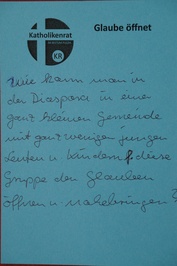 Katholikenrat
KR
Glaube öffnet
Wie kann man in
der Diaspora in einer
ganz kleinen Gemeinde
mit ganz wenigen jungen
Leuten u. Kindern f diese
Gruppe den Glauben
öffnen u. nahebringen?